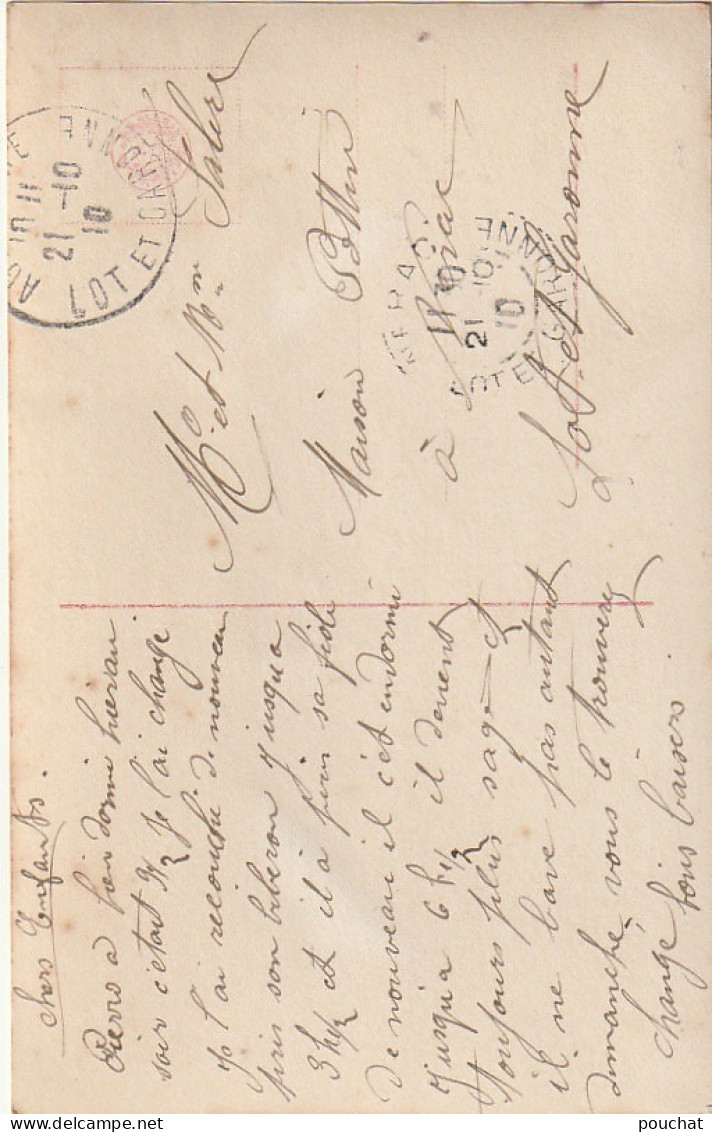 Chers Enfants.
Pierro a bien dormi hier au
soir c'etait je l'ai change
je l'ai recouché de nouveau
pris son biberon jusqu a
3 h 1/2 et il a pris sa fiole
de nouveau il c'est endormi
jusqu'a 6 h 1/2 il devient
toujours plus sage et
il ne bave pas autant
dimanche vous le trouverez
changé bons baisers
Mr et Mme
Maison
à Nérac
Lot et Garonne
21 -10
10
LOT ET GARONNE
NERAC
21 -10
10
LOT ET GARONNE
pouchat